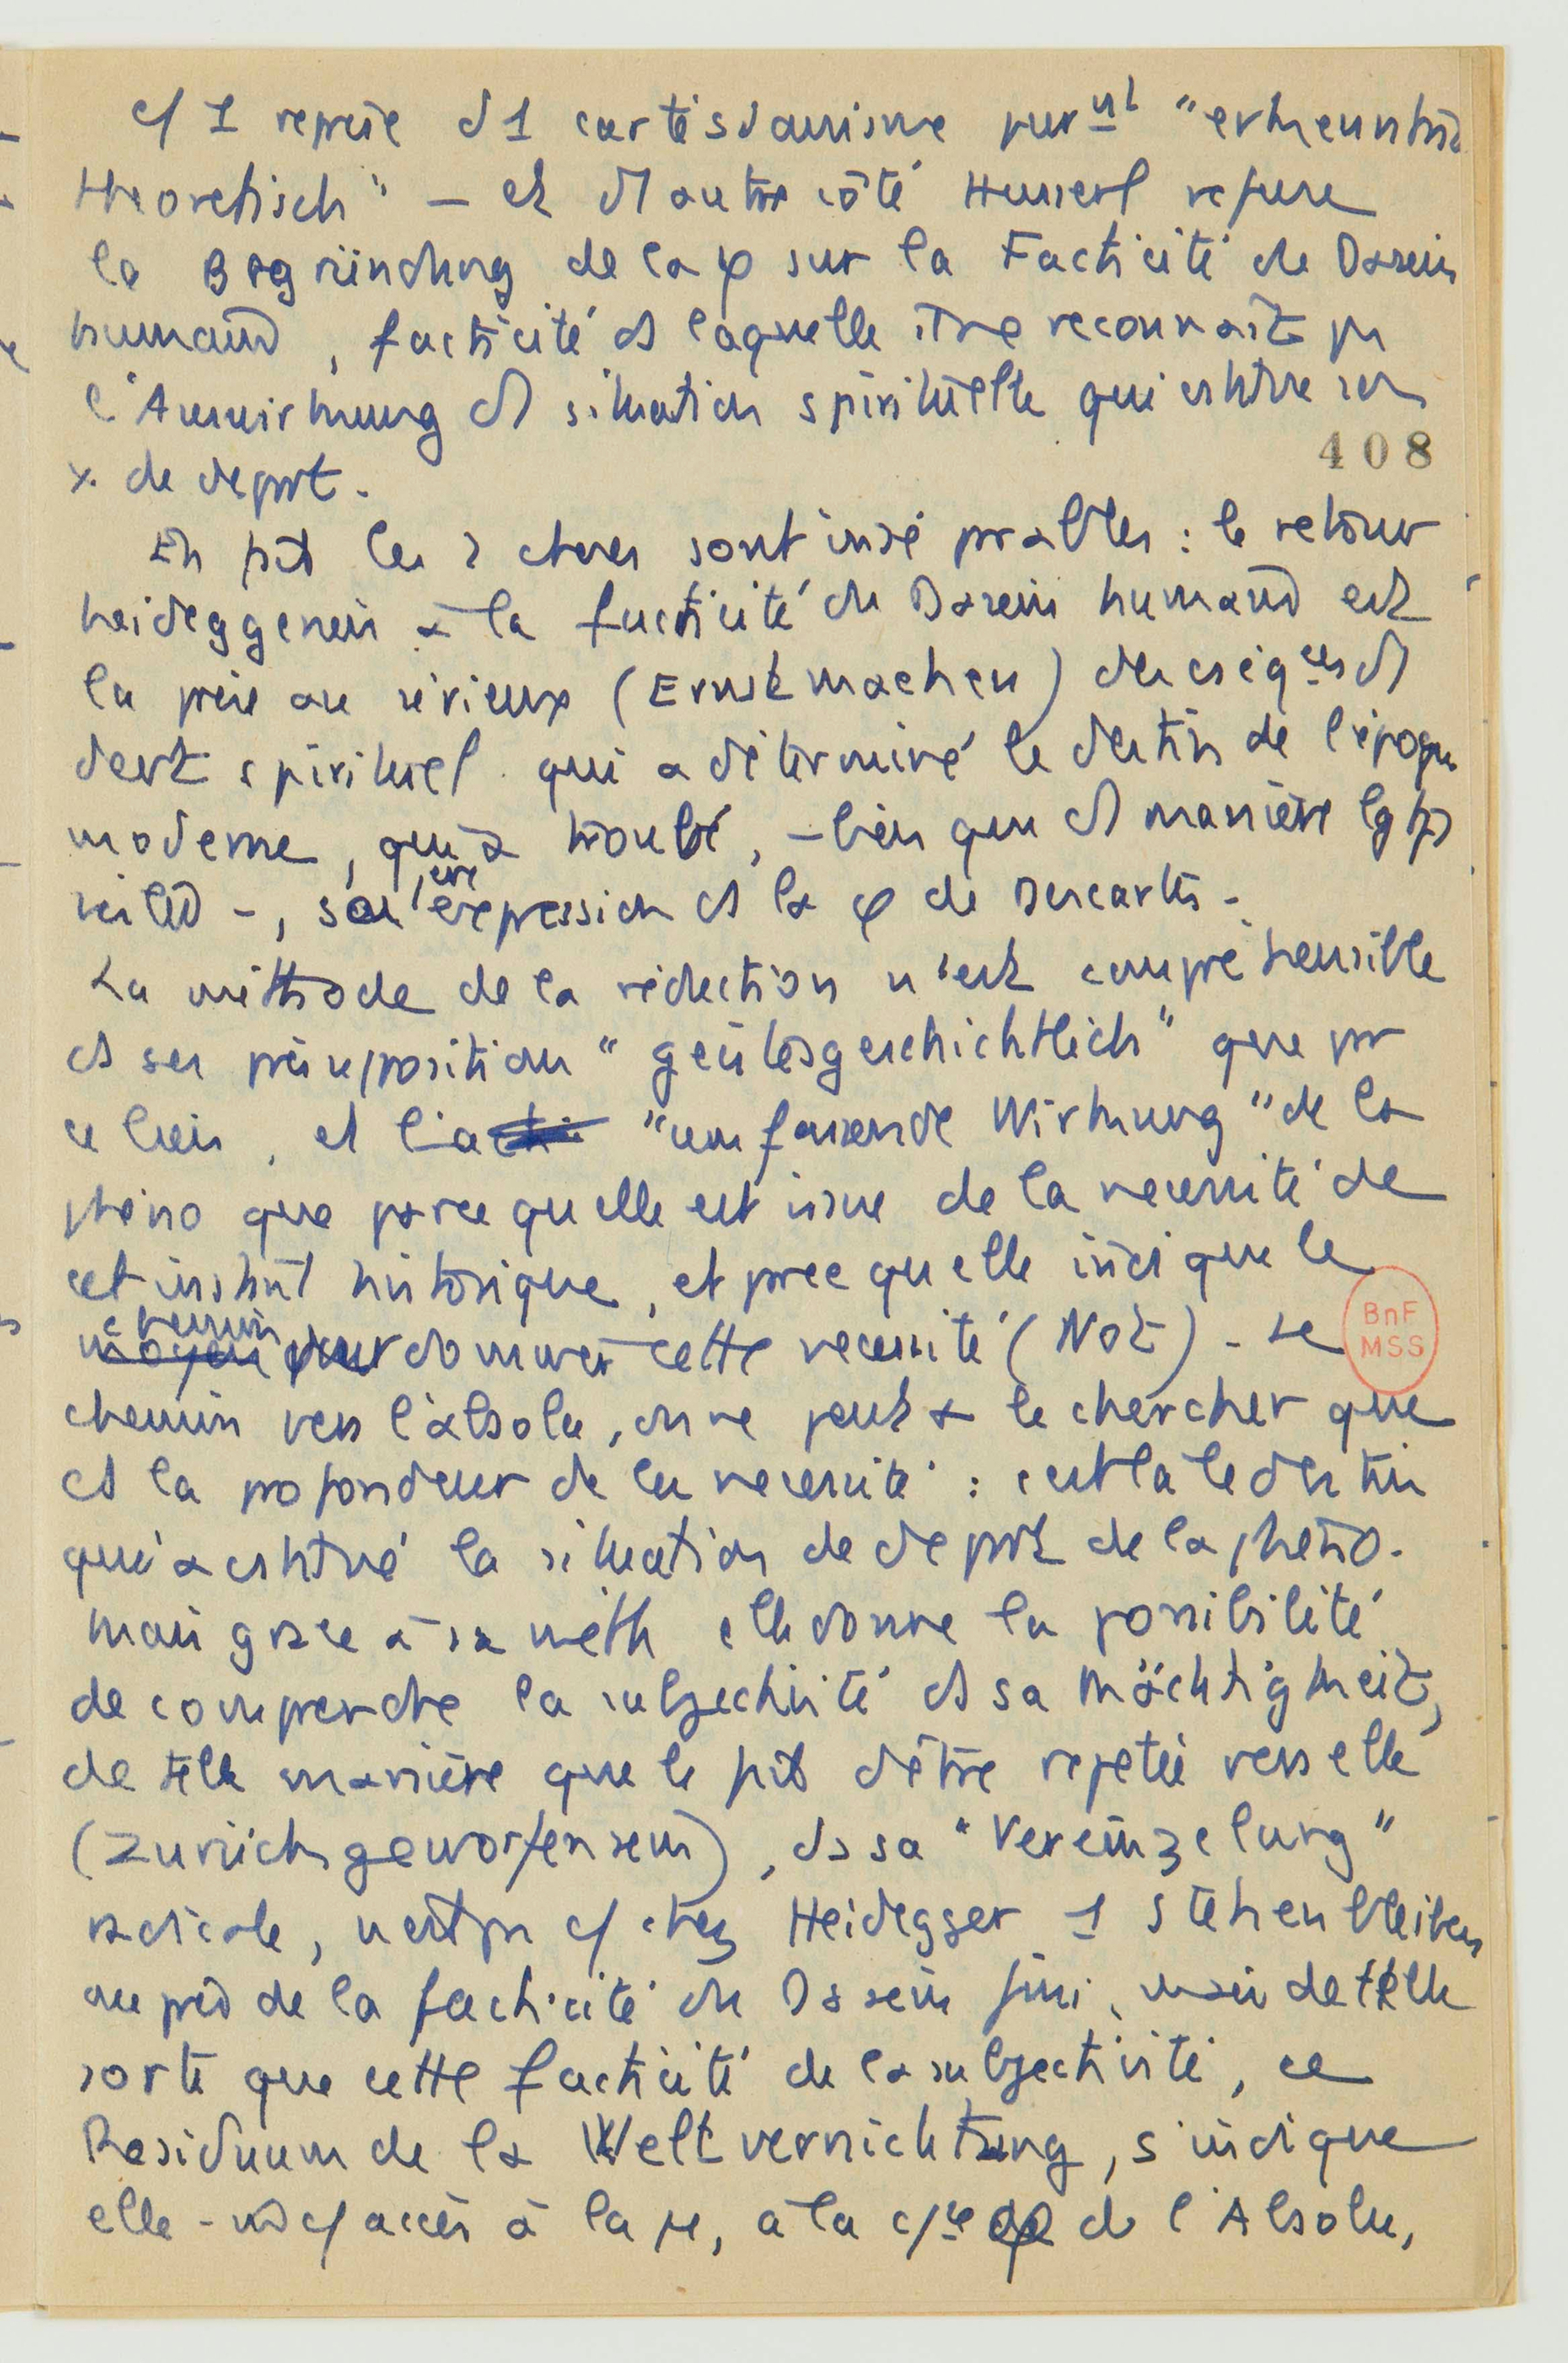 c/ 1 reprise d1 cartésianisme purnt "erkenntnis
theoretisch" – et d1 autre côté Husserl refuse
la Begründung de la φ sur la Facticité du Dasein
humain, facticité ds laquelle il ne reconnaît pas
l'Auswirkung d1 situation spirituelle qui est son
408
x. de départ.
En fait les 2 choses sont inséparables : le retour
heideggerien à la facticité du Dasein humain est
la prise au sérieux (Ernstmachen) des cséqces d1
dest spirituel qui a déterminé le destin de l'époque
moderne, qui a trouvé, – bien que d1 manière
–, son 1ère expression ds la φ de Descartes –.
La méthode de la réduction n'est compréhensible
ds ses présupposition "geistesgeschichtlich" que par
ce lien, et l'acti "umfassende Wirkung" de la
phéno que parce qu'elle est issue de la nécessité de
cet instant historique, et pree qu'elle indique le
chemin moyen pour dominer cette nécessité (Not) – Le
BnF
MSS
chemin vers l'absolu, on ne peut le chercher que
ds la profondeur de la nécessité : c'est là le destin
qui a la situation de départ de la phéno.
Mais grâce à sa méth elle donne la possibilité
de comprendre la subjectivité ds sa Mächtigkeit,
de telle manière que le fait d'être rejetée vers elle
(Zurückgeworfensein), ds sa "Vereinzelung"
radicale, n'est pas c/ chez Heidegger 1 Stehenbleiben
auprès de la facticité du Dasein fini, mais de telle
sorte que cette facticité de la subjectivité, ce
Residuum de la Weltvernichtung, s'indique
elle-m̄ c/ accès à la , à la de l'Absolu,